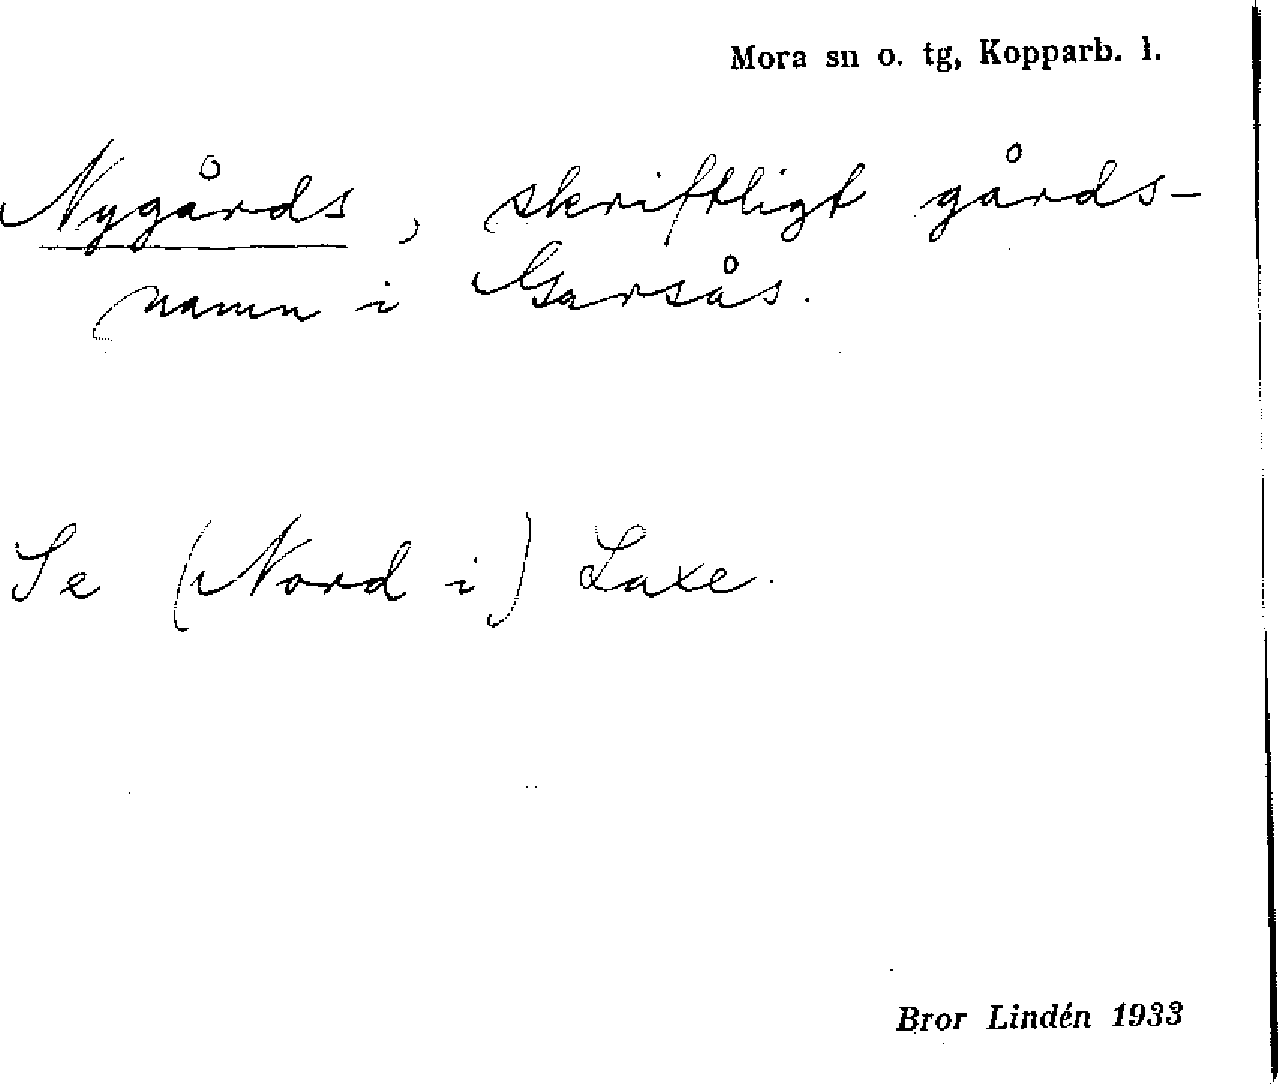 Mora sn o. tg, Kopparb. l.
Nygårds, skriftligt gårds-
namn i Garsås.
Se (Nord i) Laxe.
Bror Lindén 1933